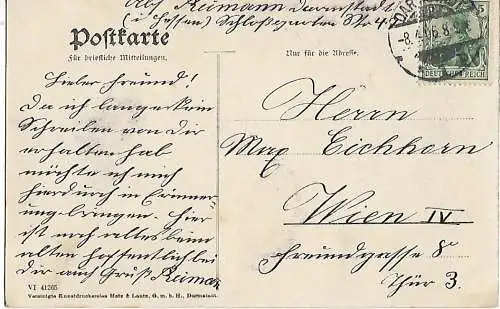 Abs. Reimann Darmstadt
(i. Hessen) Schloßgarten Str 4
Postkarte
Für briefliche Mitteilungen.
Nur für die Adresse.
DEUTSCHES REICH
Lieber Freund!
Da ich lange kein
Schreiben von Dir
erhalten hab
möchte ich mich
hierdurch in Erinner
ung bringen. Hier
ist noch alles beim
alten hoffentlich bei
dir auch Gruß Reimann
Herrn
Max Eichhorn
Wien IV
Freundgasse 8
Thür 3.
VI 41265
Vereinigte Kunstdruckereien Metz & Lautz, G. m. b. H., Darmstadt.